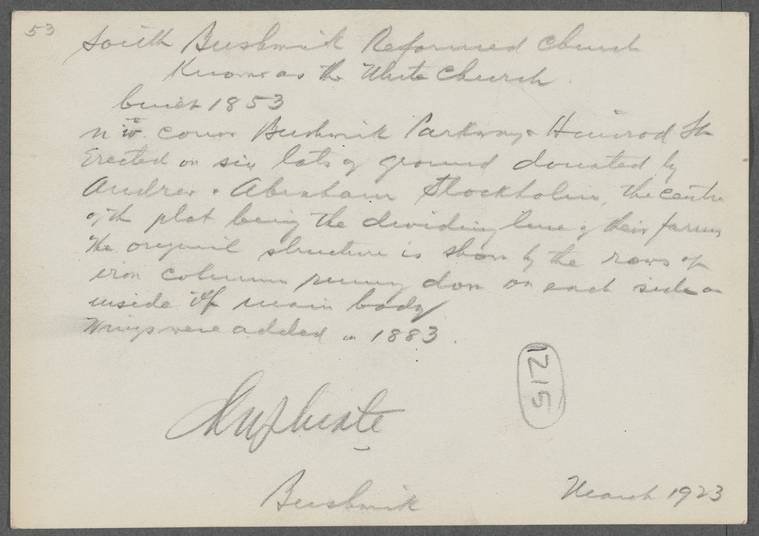 53
South Bushwick Reformed Church
Known as the White Church.
built 1853
N W. corner Bushwick Parkway & Himrod St
Erected on six lots of ground donated by
Andrew & Abraham Stockholm, the centre
of the plat being the dividing line of their farms
The original structure is shown by the rows of
iron columns running down on each side on
inside of main body
Wings were added in 1883.
1215
Duplicate
Bushwick
March 1923